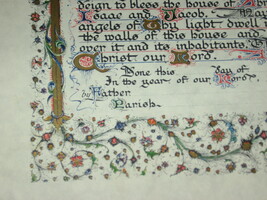 deign to bless the house of
Isaac and Jacob. May
angels of thy light dwell
the walls of this house, and
over it and its inhabitants. Th
Christ our Lord.
Done this day of
In the year of our Lord
by Father
Parish